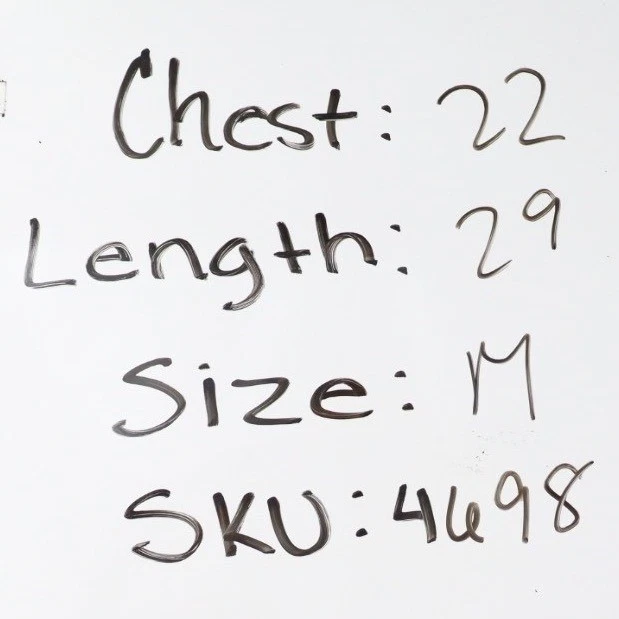 Chest: 22
Length: 29
Size: M
SKU: 4698